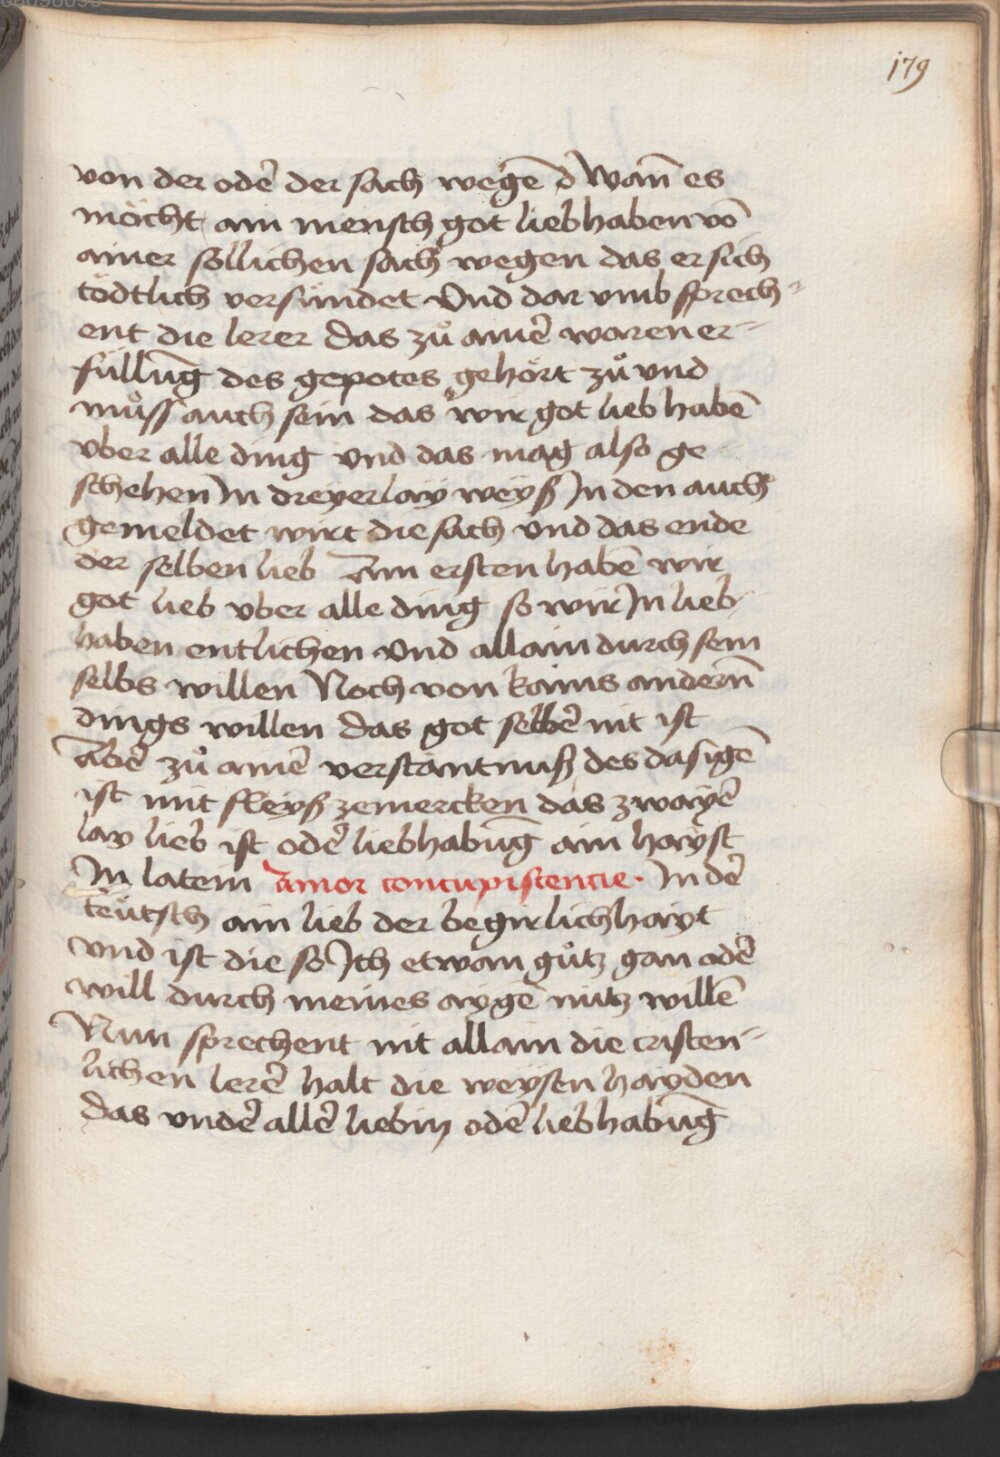 179
von der odē der sach wegē d Wan̄ es
möcht ain mensch got liebhaben vō
ainer söllichen sach wegen das er sich
tödtlich versündet Vnd dar vmb sprech=
ent die lerer das zů ainē waren er=
füllūg des gepotes gehört zů vnd
můss auch sein das wir got lieb habē
vber alle ding vnd das mag also ge
schehen In dreyerlay weyß In den auch
gemeldet wirt die sach vnd das ende
der selben lieb Am ersten habē wir
got lieb vber alle ding so wir In lieb
haben entlichen vnd allain durch sein
selbs willen Noch von kains andern̄
dings willen das got selbē nit ist
Abē zů ainē verstäntnuß des dasigē
ist mit fleyß zemercken das zwayē
lay lieb ist odē liebhabūg ain hayst
In latein Amor concupiscencie. In dē
teütsch ain lieb der begirlichhayt
vnd ist die so Ich etwan gůtz gan odē
will durch meines aygē nutz willē
Nun sprechent nit allain die cristen=
lichen lerē halt die weysen hayden
das vndē allē liebin odē liebhabūg